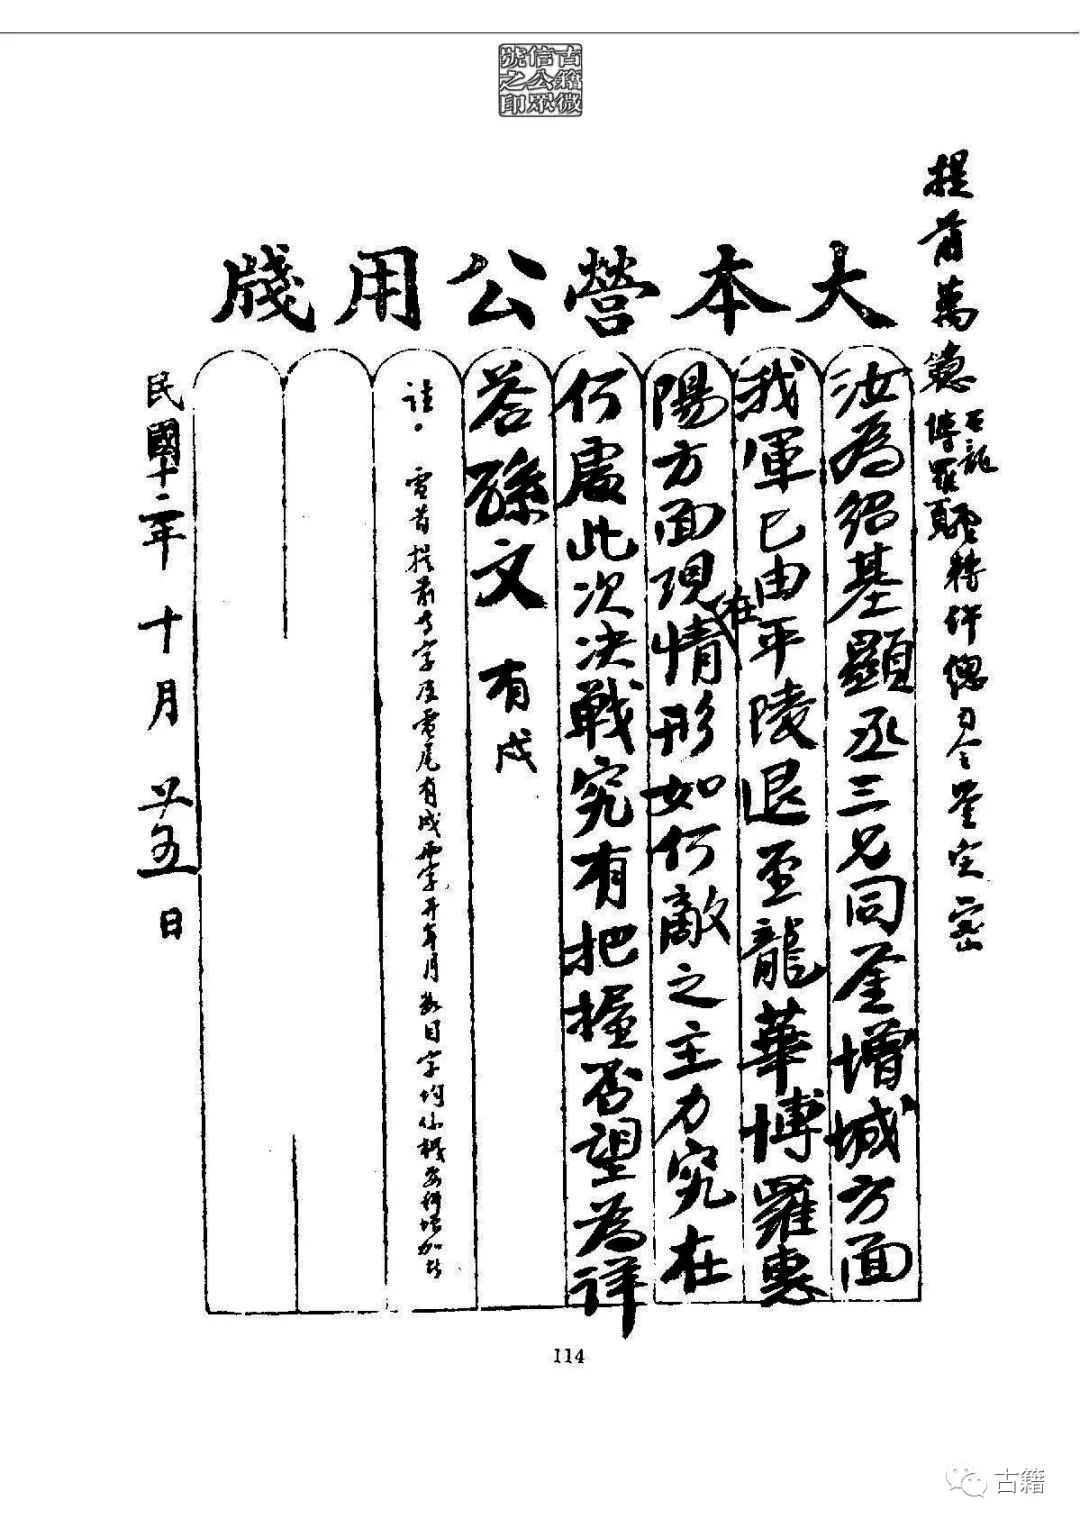 古籍微
信公眾
號之印
大本營公用牋
提前萬急
石龍
博羅
特許總司令鑒
密
汝為紹基顯丞三兄同鑒增城方面
我軍已由平陵退至龍華博羅惠
陽方面現在情形如何敵之主力究在
何處此次決戰究有把握否望為詳
答孫文 有戌
註。電首提前等字及電尾有戌兩字并年月數目字均係機要科增加者
民國十二年十月廿五日
114
古籍